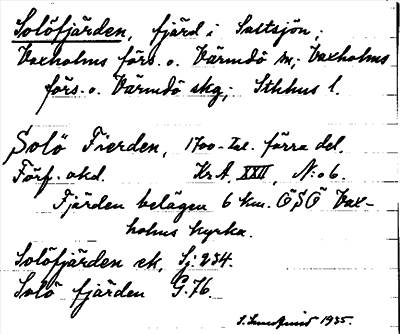 Solöfjärden, fjärd i Saltsjön;
Vaxholms förs. o. Värmdö sn; Vaxholms
förs. o. Värmdö skg; Sthlms l.
Solö Fierden, 1700-tal. förra del.
Förf. okd. Kr A, XXII, N:o 6.
Fjärden belägen 6 km. ÖSÖ Vax-
holms kyrka.
Solöfjärden ek, Sj: 234.
Solö fjärden G. 76
1935.